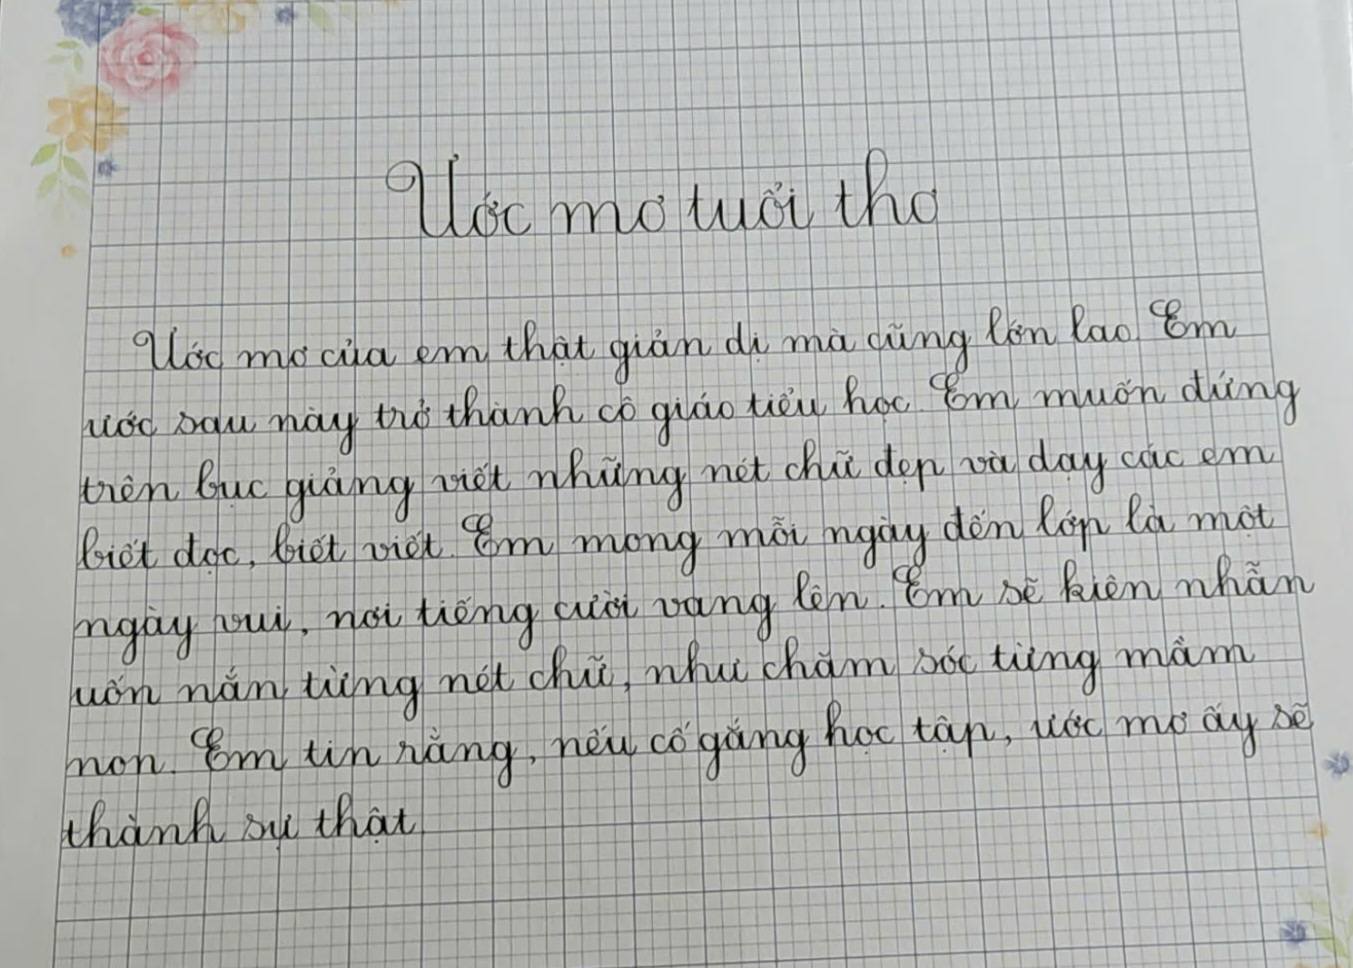 Ước mơ tuổi thơ
Ước mơ của em thật giản dị mà cũng lớn lao. Em
ước sau này trở thành cô giáo tiểu học. Em muốn đứng
trên bục giảng viết những nét chữ đẹp và dạy các em
biết đọc, biết viết. Em mong mỗi ngày đến lớp là một
ngày vui, nơi tiếng cười vang lên. Em sẽ kiên nhẫn
uốn nắn từng nét chữ, như chăm sóc từng mầm
non. Em tin rằng, nếu cố gắng học tập, ước mơ ấy sẽ
thành sự thật